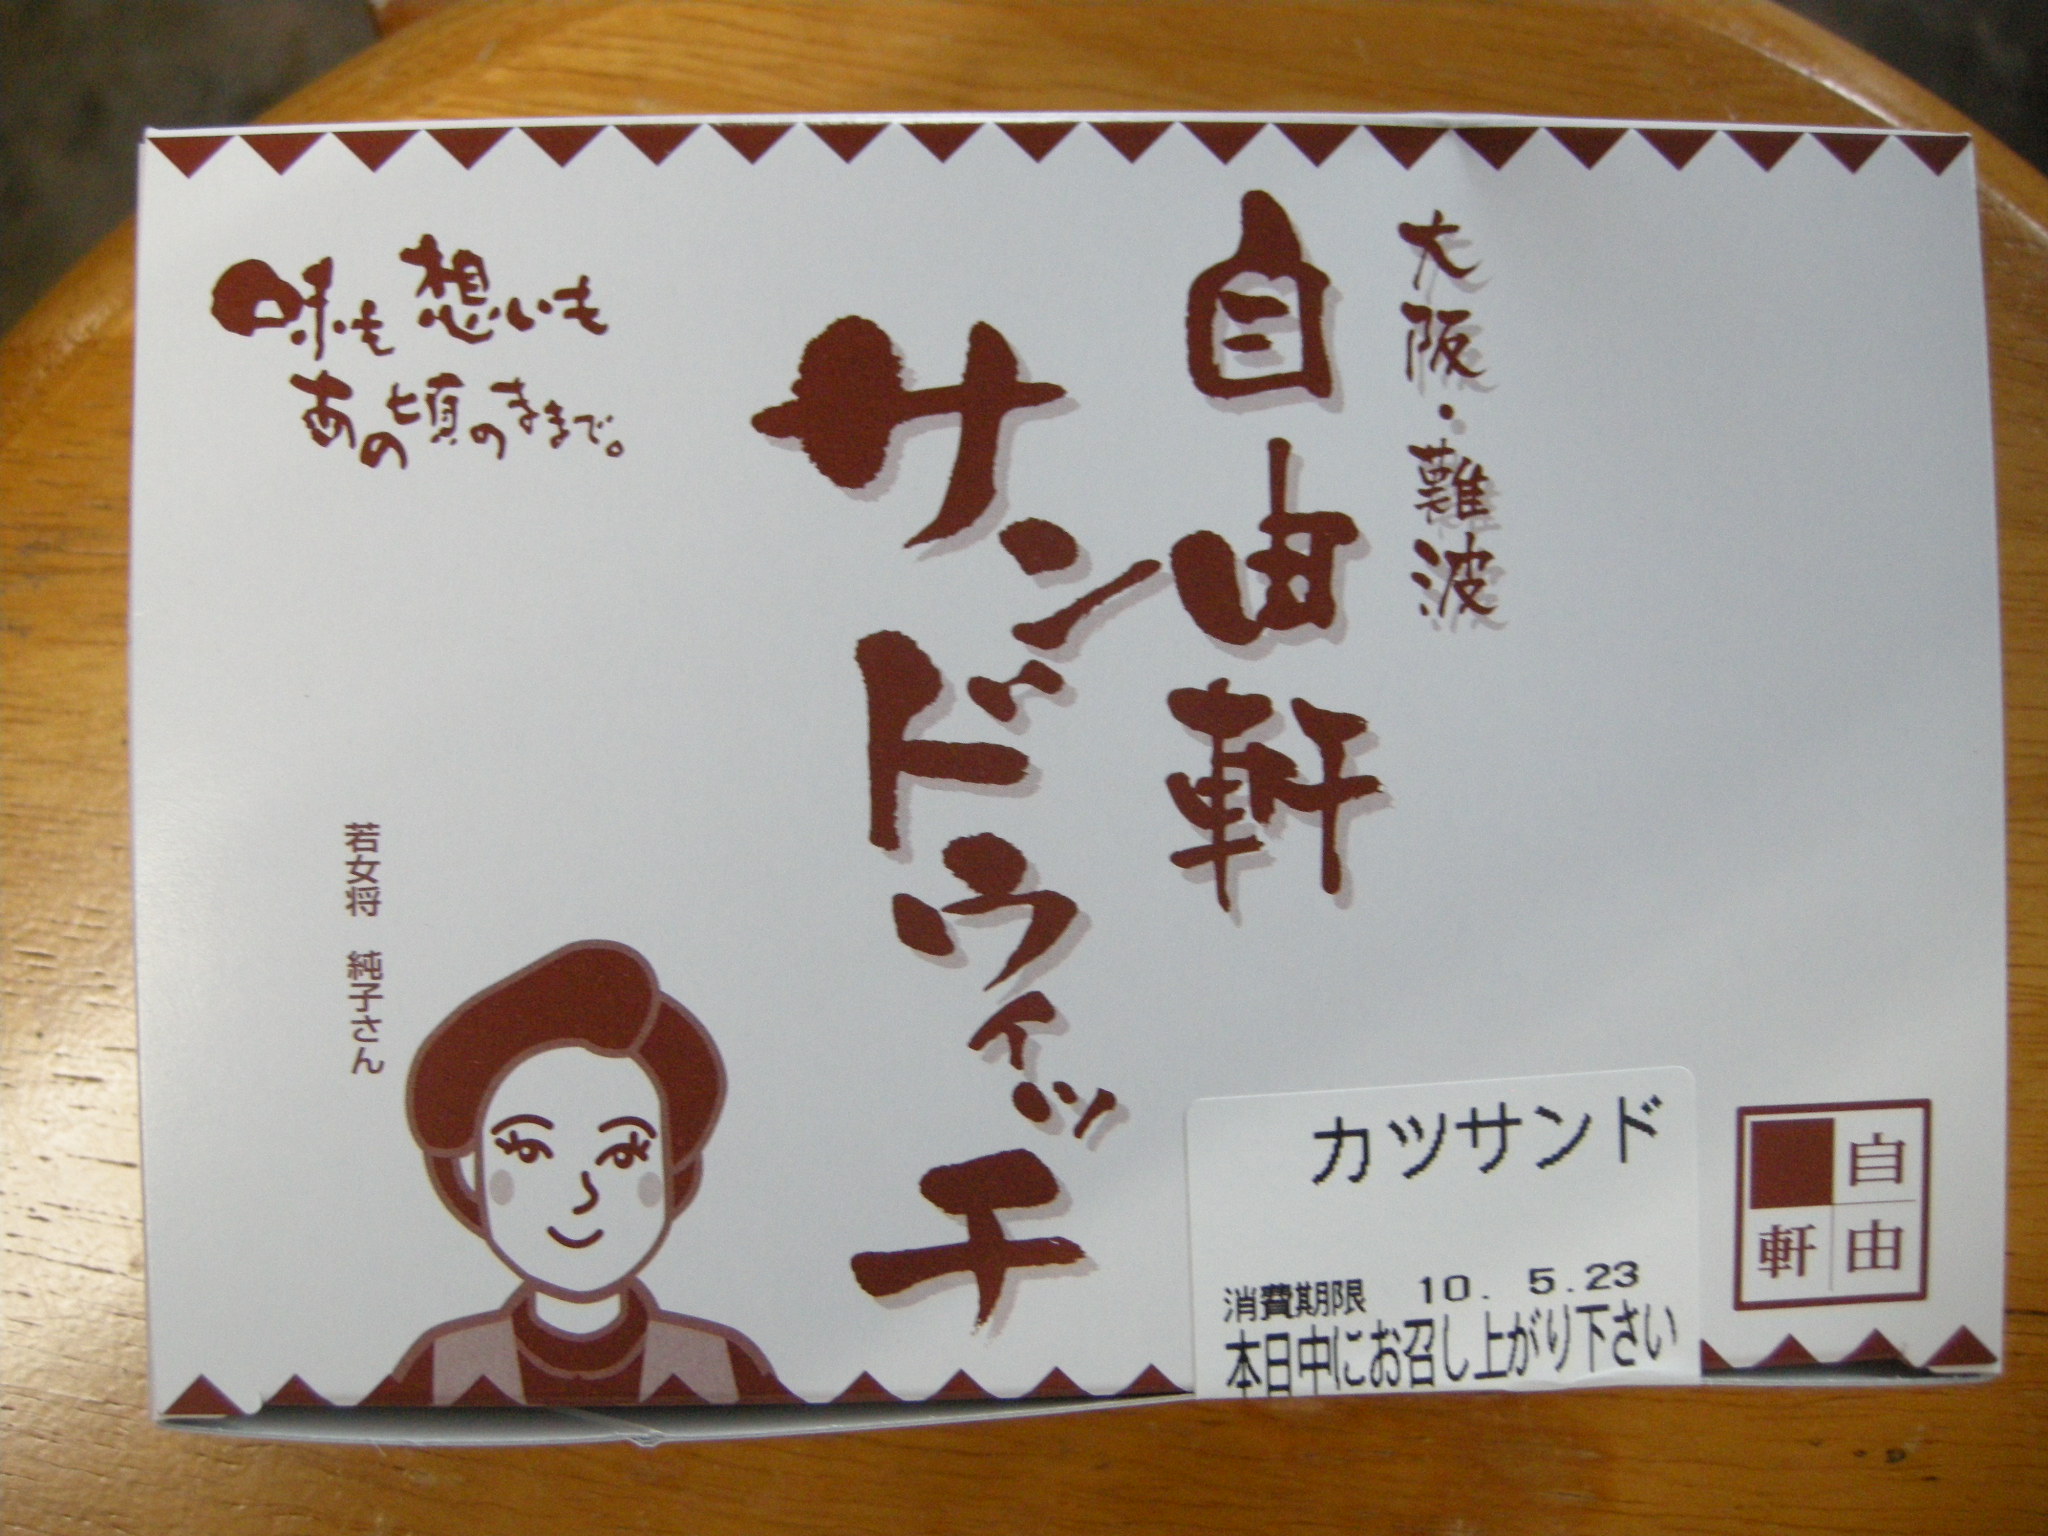 大阪・難波
自由軒
サンドウィッチ
味も想いも
あの頃のままで。
若女将 純子さん
カツサンド
消費期限 10. 5.23
本日中にお召し上がり下さい
自由
軒